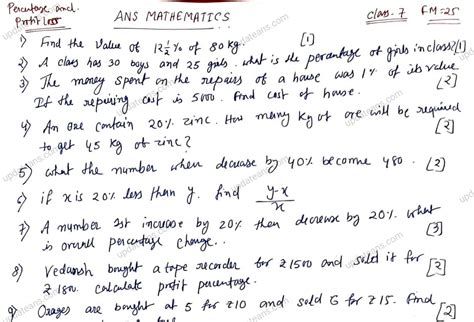 Percentage and
Profit Loss
ANS MATHEMATICS
class- 7 FM:25
1) Find the value of 12½% of 80 kg. [1]
2) A class has 30 boys and 25 girls. what is the percentage of girls in class? [1]
3) The money spent on the repairs of a house was 1% of its value.
If the repairing cost is 5000. find cost of house. [2]
4) An ore contain 20% zinc. How many kg of ore will be required
to get 45 kg of zinc? [2]
5) what the number when decrease by 40% become 480. [2]
6) if x is 20% less than y. find y-x/x [2]
7) A number 1st increase by 20% then decrease by 20%. what
is overall percentage change. [3]
8) Vedansh bought a tape recorder for ₹1500 and sold it for
₹1800. calculate profit percentage. [2]
9) Orages are bought at 5 for ₹10 and sold 6 for ₹15. find [2]
updateans.com